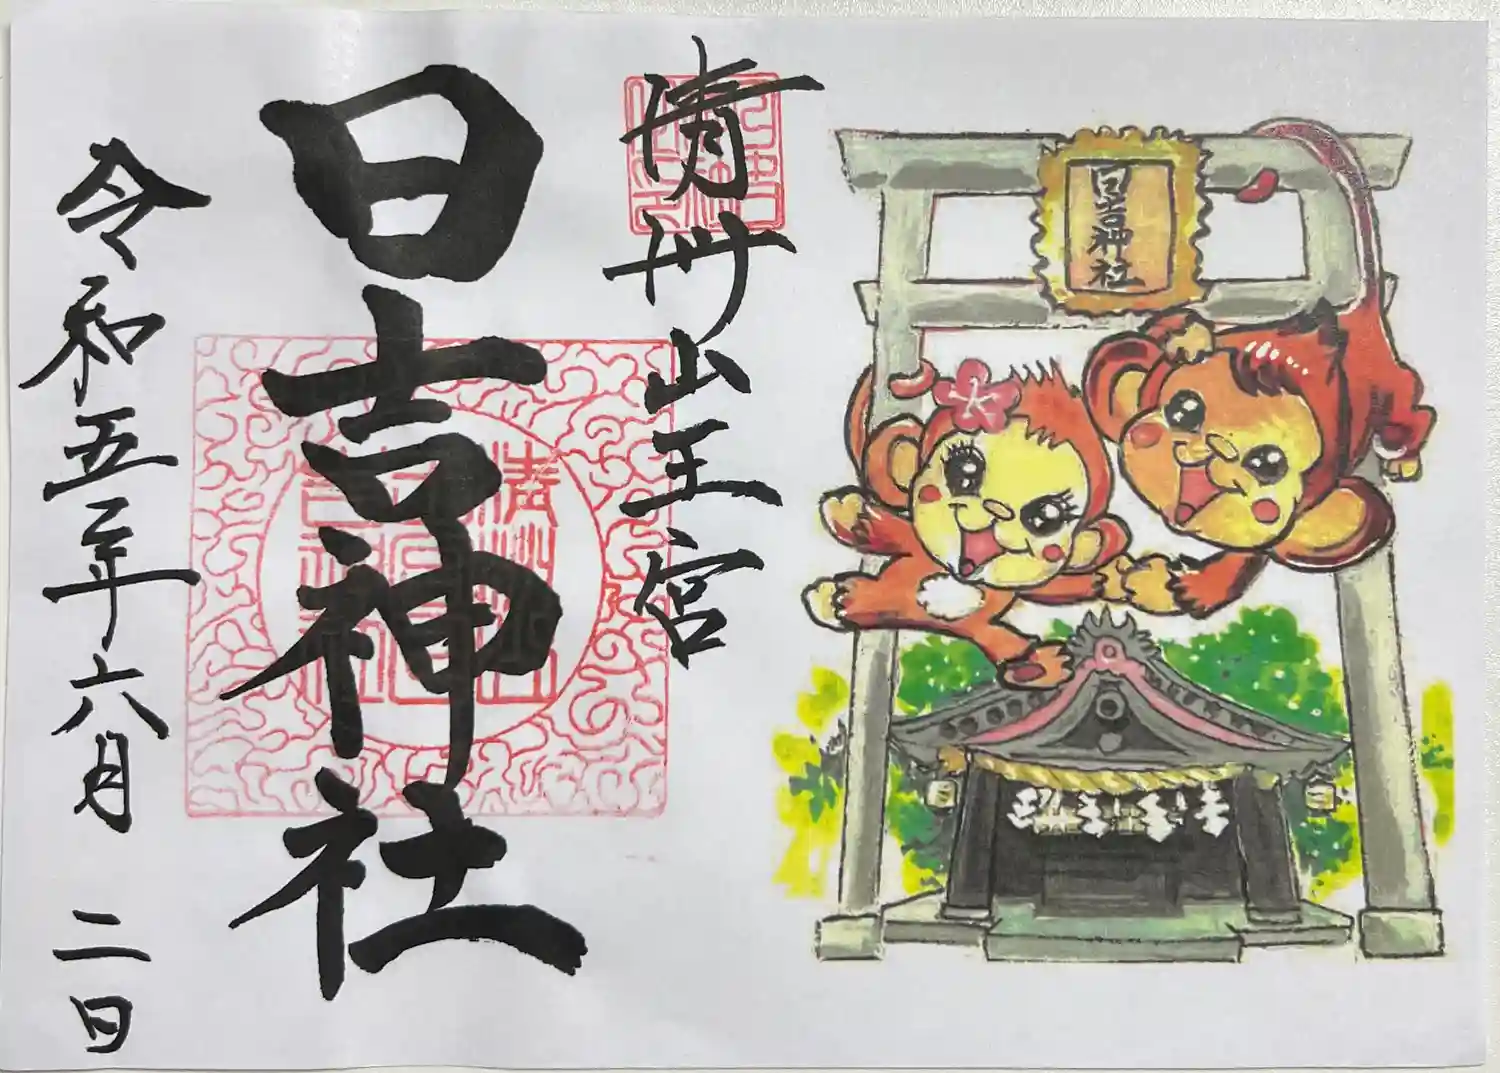 日吉神社
清州山王宮
日吉神社
令和五年六月二日